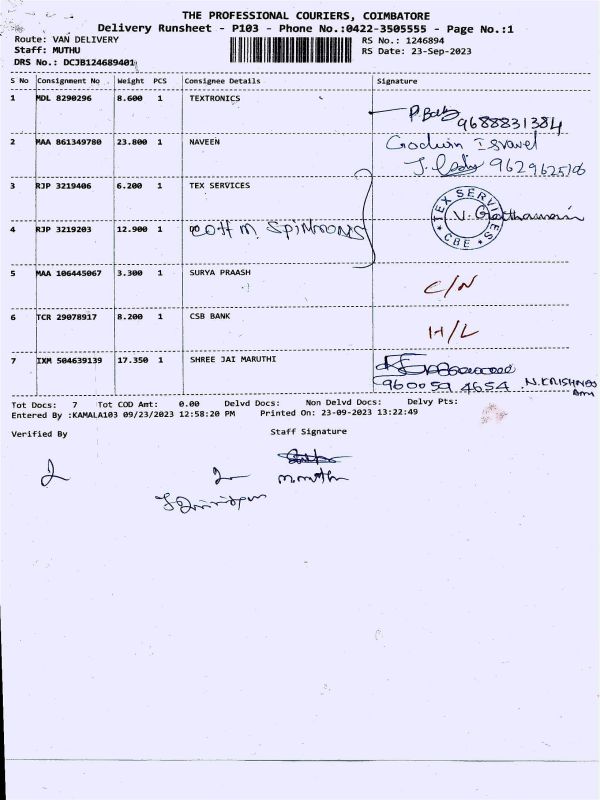 THE PROFESSIONAL COURIERS, COIMBATORE
Delivery Runsheet - P103 - Phone No.:0422-3505555 - Page No.:1
Route: VAN DELIVERY RS No.: 1246894
Staff: MUTHU RS Date: 23-Sep-2023
DRS No.: DCJB124689401
S No Consignment No Weight PCS Consignee Details Signature
1 MDL 8290296 8.600 1 TEXTRONICS
9688831384
2 MAA 861349780 23.800 1 NAVEEN Godwin Isravel
9629625106
3 RJP 3219406 6.200 1 TEX SERVICES
TEX SERVICES
CBE
4 RJP 3219203 12.900 1
5 MAA 106445067 3.300 1 SURYA PRAASH C/N
6 TCR 29078917 8.200 1 CSB BANK H/L
7 IXM 504639139 17.350 1 SHREE JAI MARUTHI
960059 4654
Tot Docs: 7 Tot COD Amt: 0.00 Delvd Docs: Non Delvd Docs: Delvy Pts:
Entered By :KAMALA103 09/23/2023 12:58:20 PM Printed On: 23-09-2023 13:22:49
Verified By Staff Signature